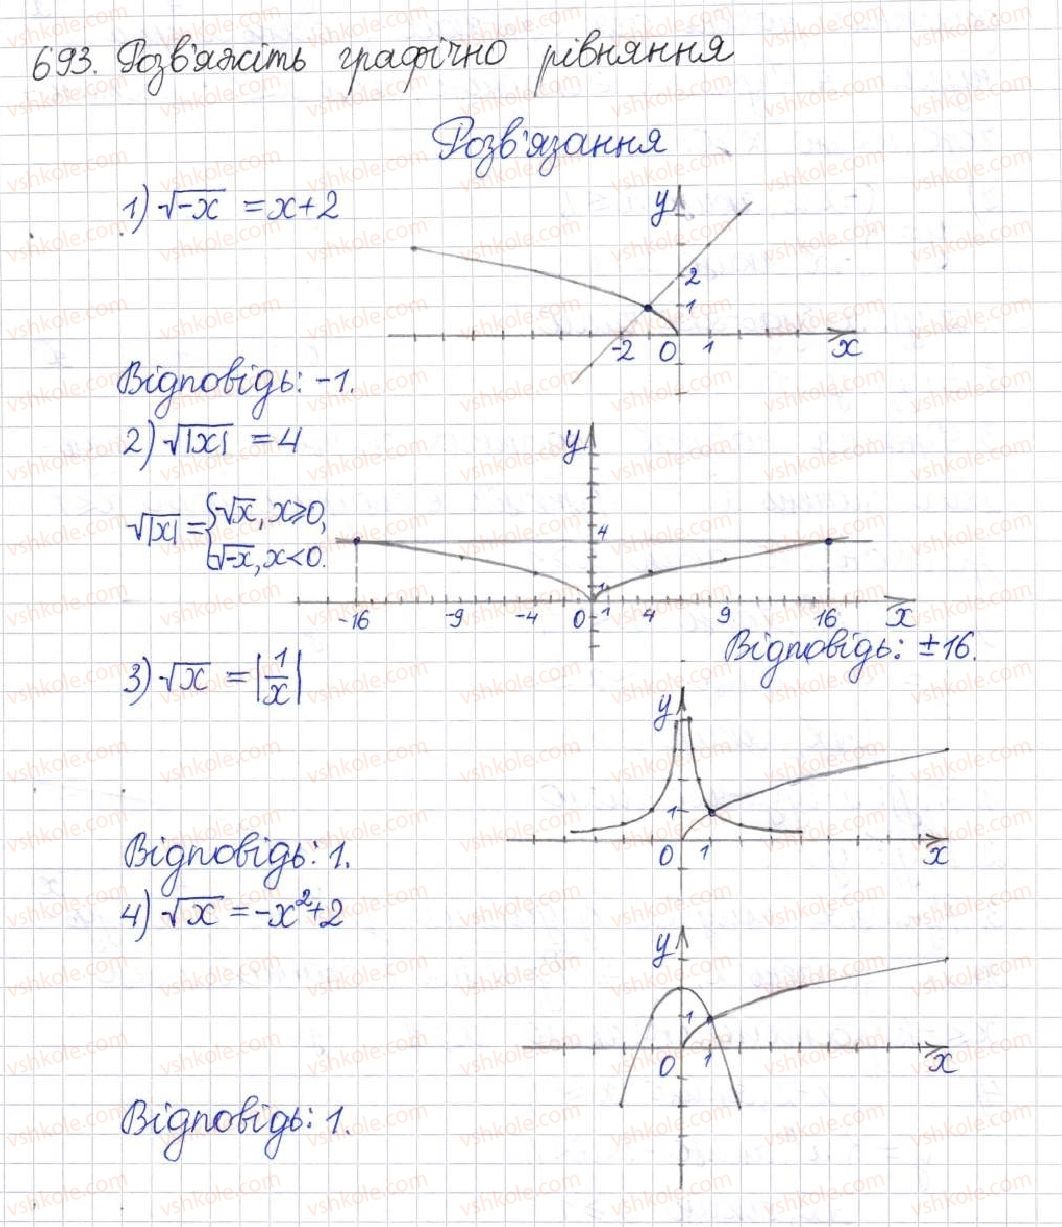 693. Розв'яжіть графічно рівняння
Розв'язання
1) √-x = x+2
y
2
1
-2 0 1 x
Відповідь: -1.
2) √|x| = 4
y
√|x| = {√x, x≥0,
√-x, x<0.
4
1
-16 -9 -4 0 1 4 9 16 x
Відповідь: ±16.
3) √x = |1/x|
y
1
0 1 x
Відповідь: 1.
4) √x = -x²+2
y
1
0 1 x
Відповідь: 1.
vshkole.com